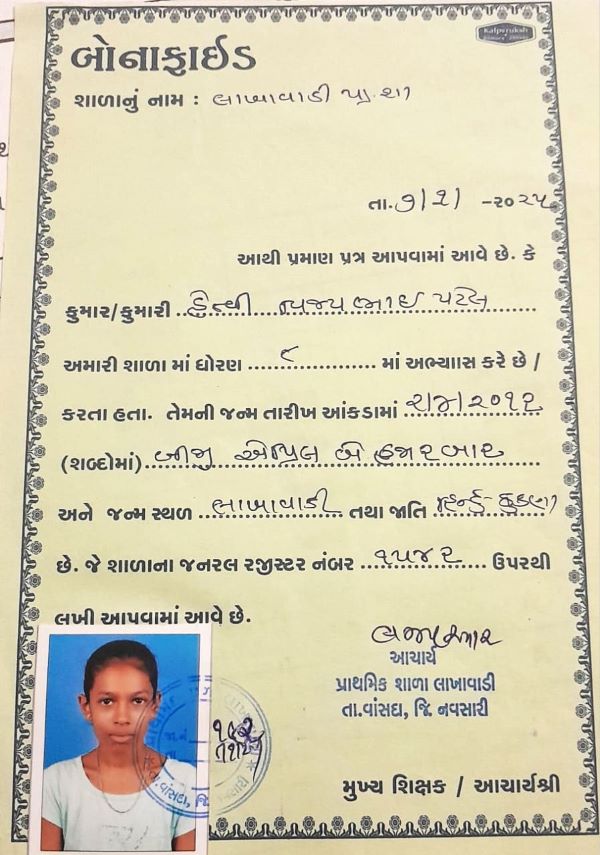 Kalpvruksh
બોનાફાઈડ
શાળાનું નામ : લાખાવાડી પ્રા.શા
તા. ૭/૨/ -૨૦૨૫
આથી પ્રમાણ પત્ર આપવામાં આવે છે. કે
કુમાર/કુમારી પટેલ
અમારી શાળા માં ધોરણ ૮ માં અભ્યાસ કરે છે /
કરતા હતા. તેમની જન્મ તારીખ આંકડામાં ૨/૪/૨૦૧૨
(શબ્દોમાં) બીજી એપ્રિલ બે હજાર બાર
અને જન્મ સ્થળ લાખાવાડી તથા જાતિ હિન્દુ-કુકણા
છે. જે શાળાના જનરલ રજીસ્ટર નંબર ૧૫૪૨ ઉપરથી
લખી આપવામાં આવે છે.
આચાર્ય
પ્રાથમિક શાળા લાખાવાડી
તા.વાંસદા, જિ. નવસારી
તા.વાંસદા, જિ.
મુખ્ય શિક્ષક / આચાર્યશ્રી